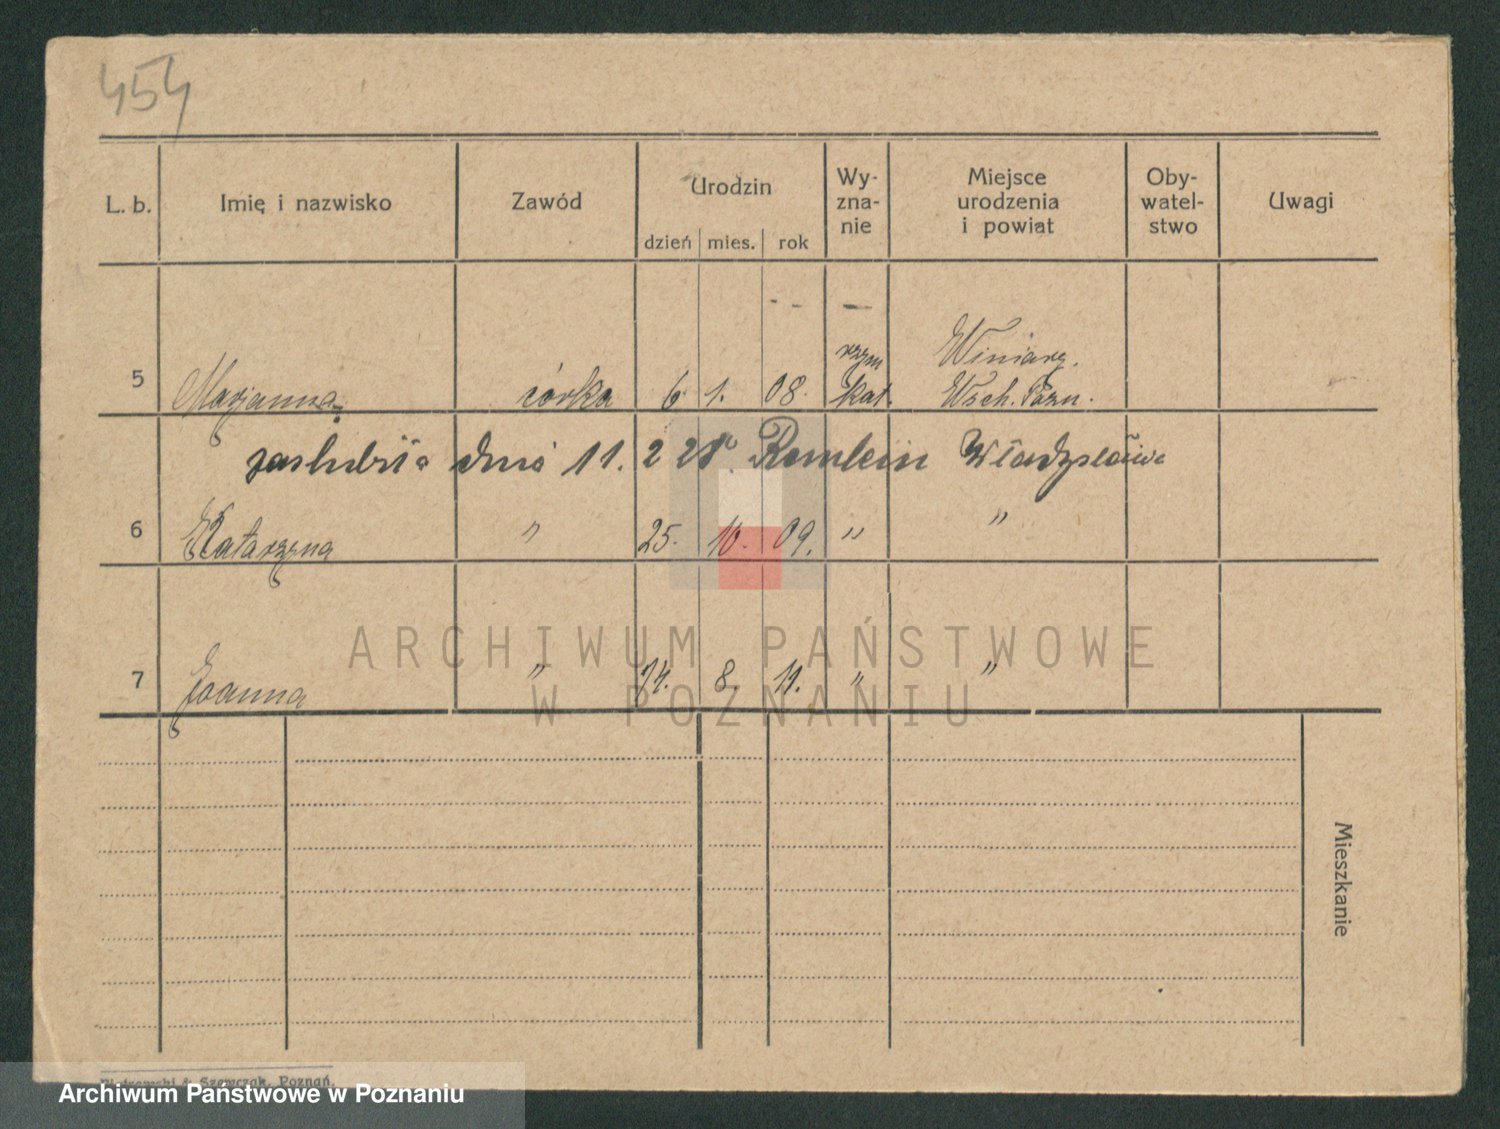 454
L. b. Imię i nazwisko Zawód Urodzin Wy-zna-nie Miejsce urodzenia i powiat Oby-watel-stwo Uwagi
dzień mies. rok
5 Marjanna córka 6. 1. 08. rzym kat. Winiary. Wsch. Pozn.
zaślubiła dnia 11. 2 28 Remlein Władysława
6 Katarzyna " 25. 10. 09. " "
7 Joanna " 14. 8. 11. " "
Mieszkanie
ARCHIWUM PAŃSTWOWE
W POZNANIU
& Szewczak, Poznań.
Archiwum Państwowe w Poznaniu